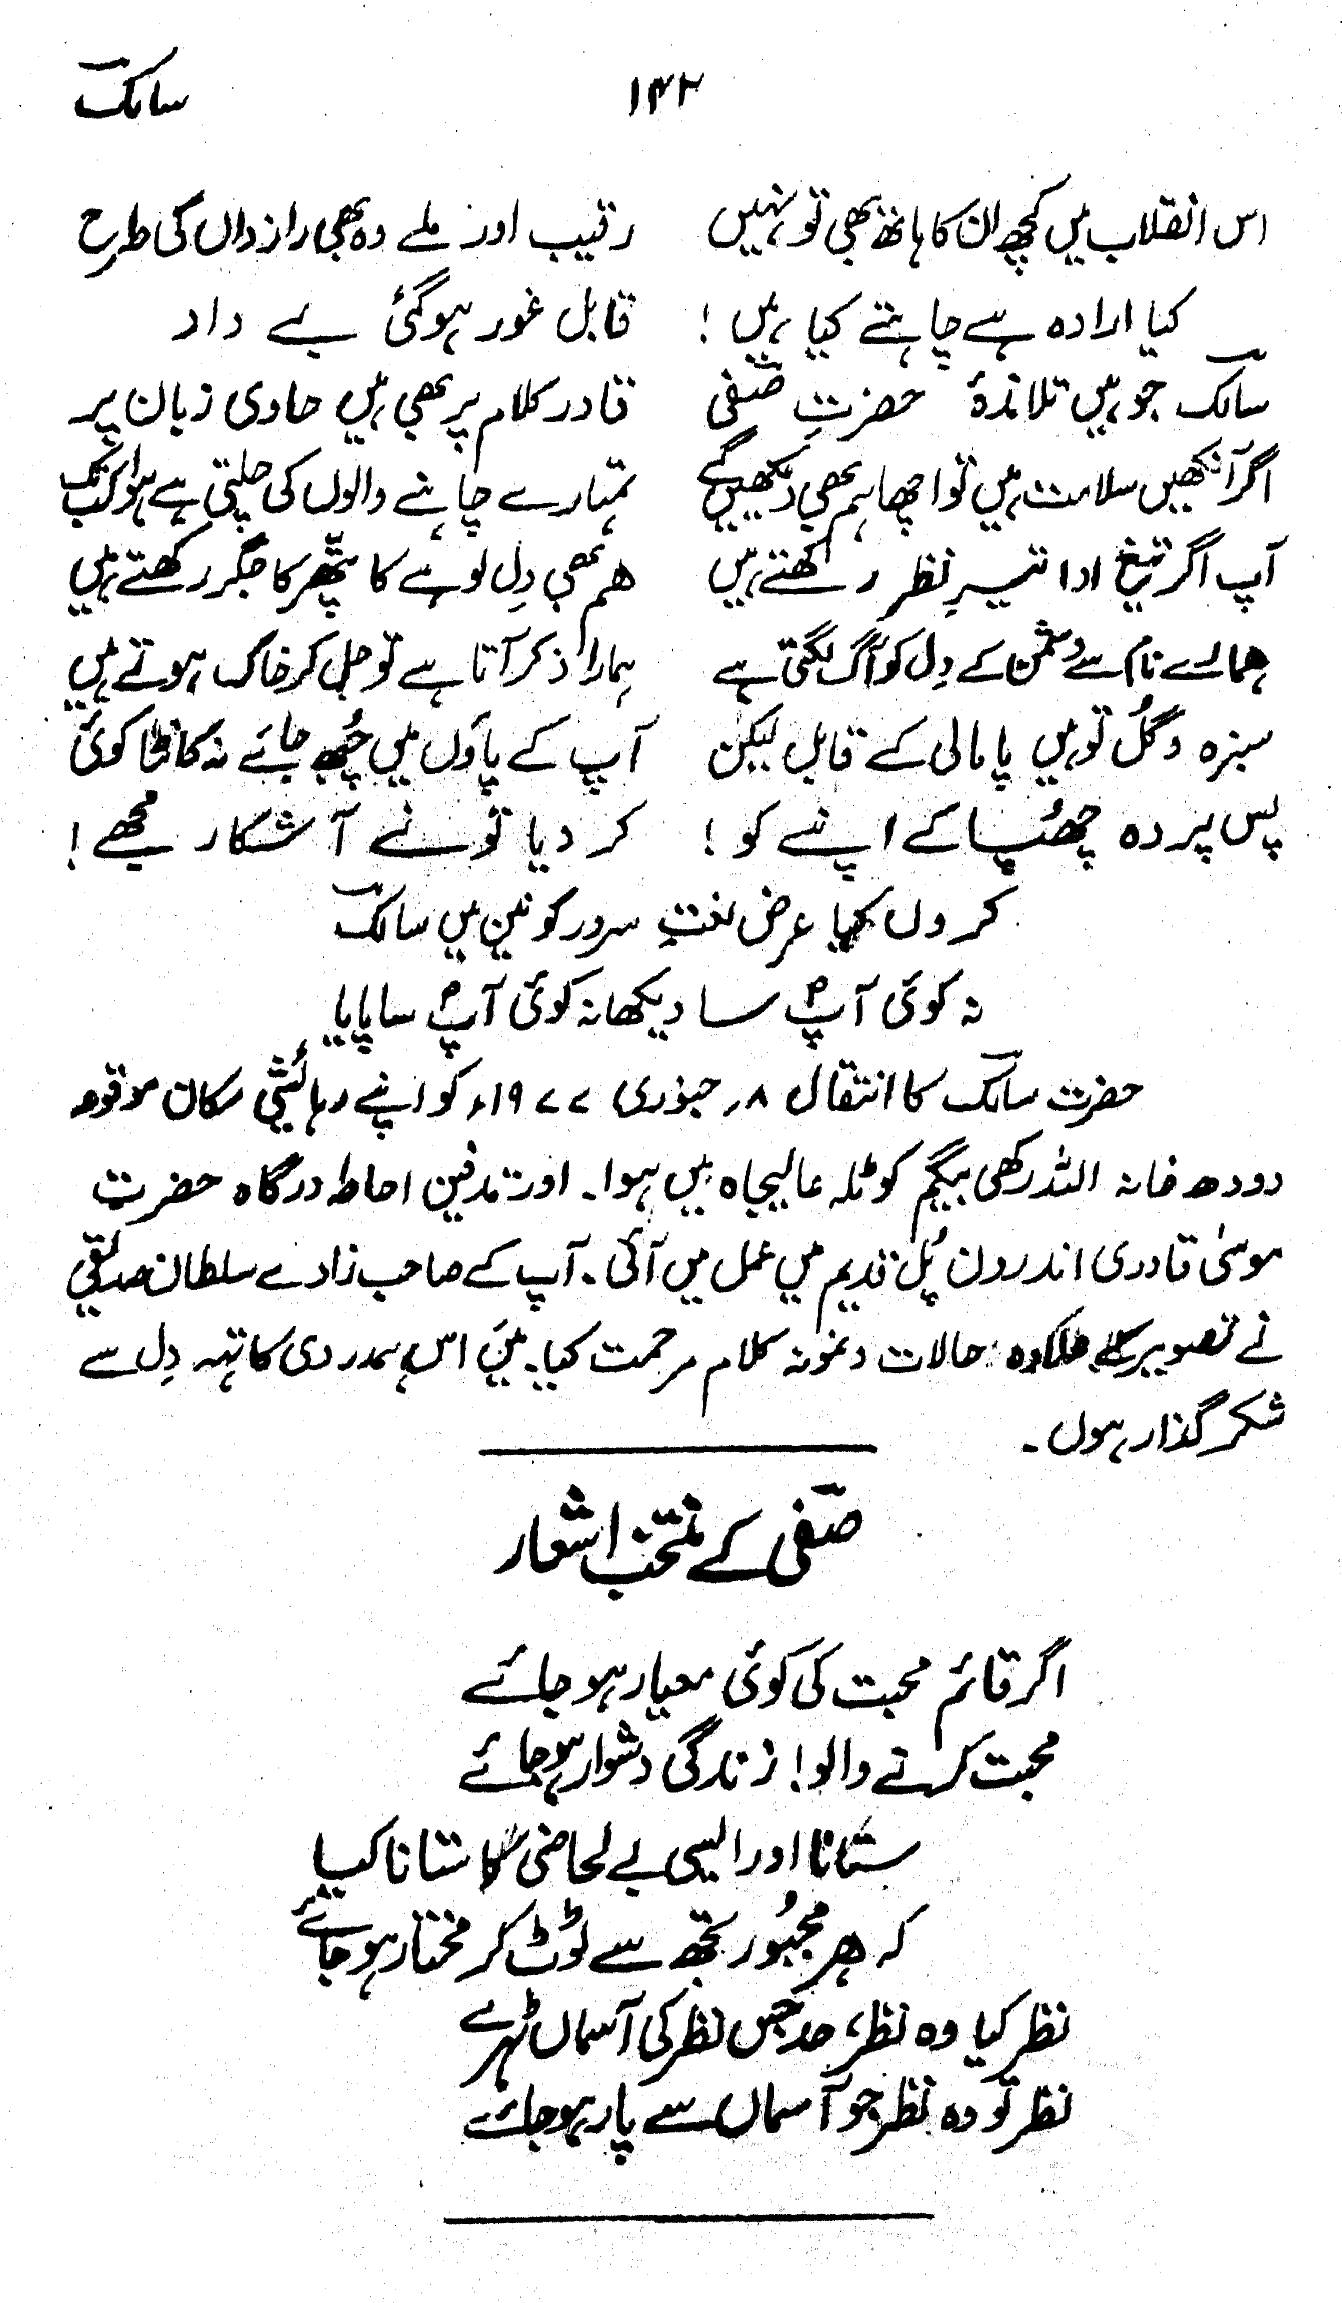 ۱۴۲ سالکؔ
اس انقلاب میں کچھ ان کا ہاتھ بھی تو نہیں رقیب اور ملے وہ بھی رازداں کی طرح
کیا ارادہ ہے چاہتے کیا ہیں ! قابل غور ہوگئی بے داد
سالکؔ جو ہیں تلامذۂ حضرتِ صفیؔ قادر کلام پر بھی ہیں حاوی زبان پر
اگر آنکھیں سلامت ہیں تو اچھا ہم بھی دیکھیں گے تمہارے چاہنے والوں کی چلتی ہے ہوا کب تک
آپ اگر تیغِ ادا تیرِ نظر رکھتے ہیں ہم بھی دِل لوہے کا پتھّر کا جگر رکھتے ہیں
ہمارے نام سے دشمن کے دِل کو آگ لگتی ہے ہمارا ذکر آتا ہے تو جل کر خاک ہوتے ہیں
سبزہ و گُل تو ہیں پامالی کے قابل لیکن آپ کے پاؤں میں چُبھ جائے نہ کانٹا کوئی
پس پردہ چھُپا کے اپنے کو ! کر دیا تو نے آشکار مجھے !
کروں کیا عرض نعتِ سرور کونین میں سالکؔ
نہ کوئی آپؐ سا دیکھا نہ کوئی آپؐ سا پایا
حضرت سالکؔ کا انتقال ۸؍ جنوری ۱۹۷۷ء کو اپنے رہائشی مکان موقوعہ
دودھ خانہ اللہ رکھی بیگم کوٹلہ عالیجاہ میں ہوا۔ اور تدفین احاطہ درگاہ حضرت
موسیٰ قادری اندرون پُل قدیم میں عمل میں آئی۔ آپ کے صاحب زادے سلطان صدیقی
نے تصویر کے علاوہ حالات و نمونہ کلام مرحمت کیا۔ میں اس ہمدردی کا تہہ دِل سے
شکر گذار ہوں۔
صفیؔ کے منتخب اشعار
اگر قائم محبت کی کوئی معیار ہو جائے
محبت کرنے والو! زندگی دشوار ہو جائے
ستانا اور ایسی بے لحاضی کا ستانا کیا
کہ ہر مجبُور تجھ سے ٹوٹ کر مختار ہو جائے
نظر کیا وہ نظر، حد جس نظر کی آسماں ٹہرے
نظر تو وہ نظر جو آسماں سے پار ہو جائے